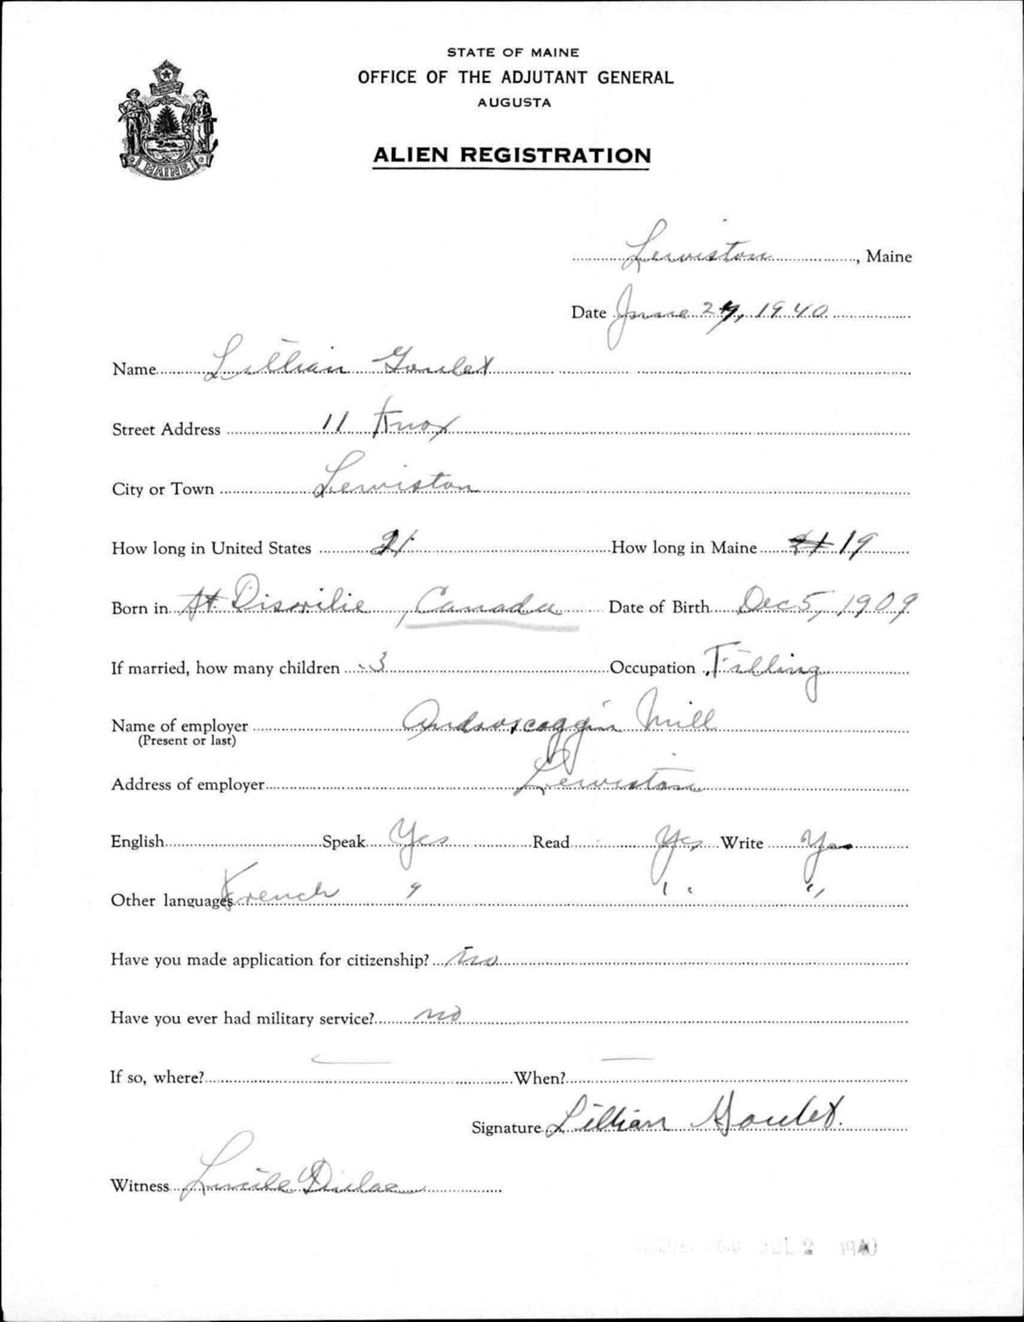 STATE OF MAINE
OFFICE OF THE ADJUTANT GENERAL
AUGUSTA
ALIEN REGISTRATION
MAINE
Lewiston, Maine
Date June 29, 1940
Name Lillian Goulet
Street Address 11 Knox
City or Town Lewiston
How long in United States 21 How long in Maine 21 19
Born in St. , Canada Date of Birth Dec 5, 1909
If married, how many children 3 Occupation Filling
Name of employer Androscoggin Mill
(Present or last)
Address of employer Lewiston
English Speak Yes Read Yes Write Yes
Other languages French " " "
Have you made application for citizenship? no
Have you ever had military service? no
If so, where? When?
Signature Lillian Goulet.
Witness Lucile Dulac
JUL 2 1940